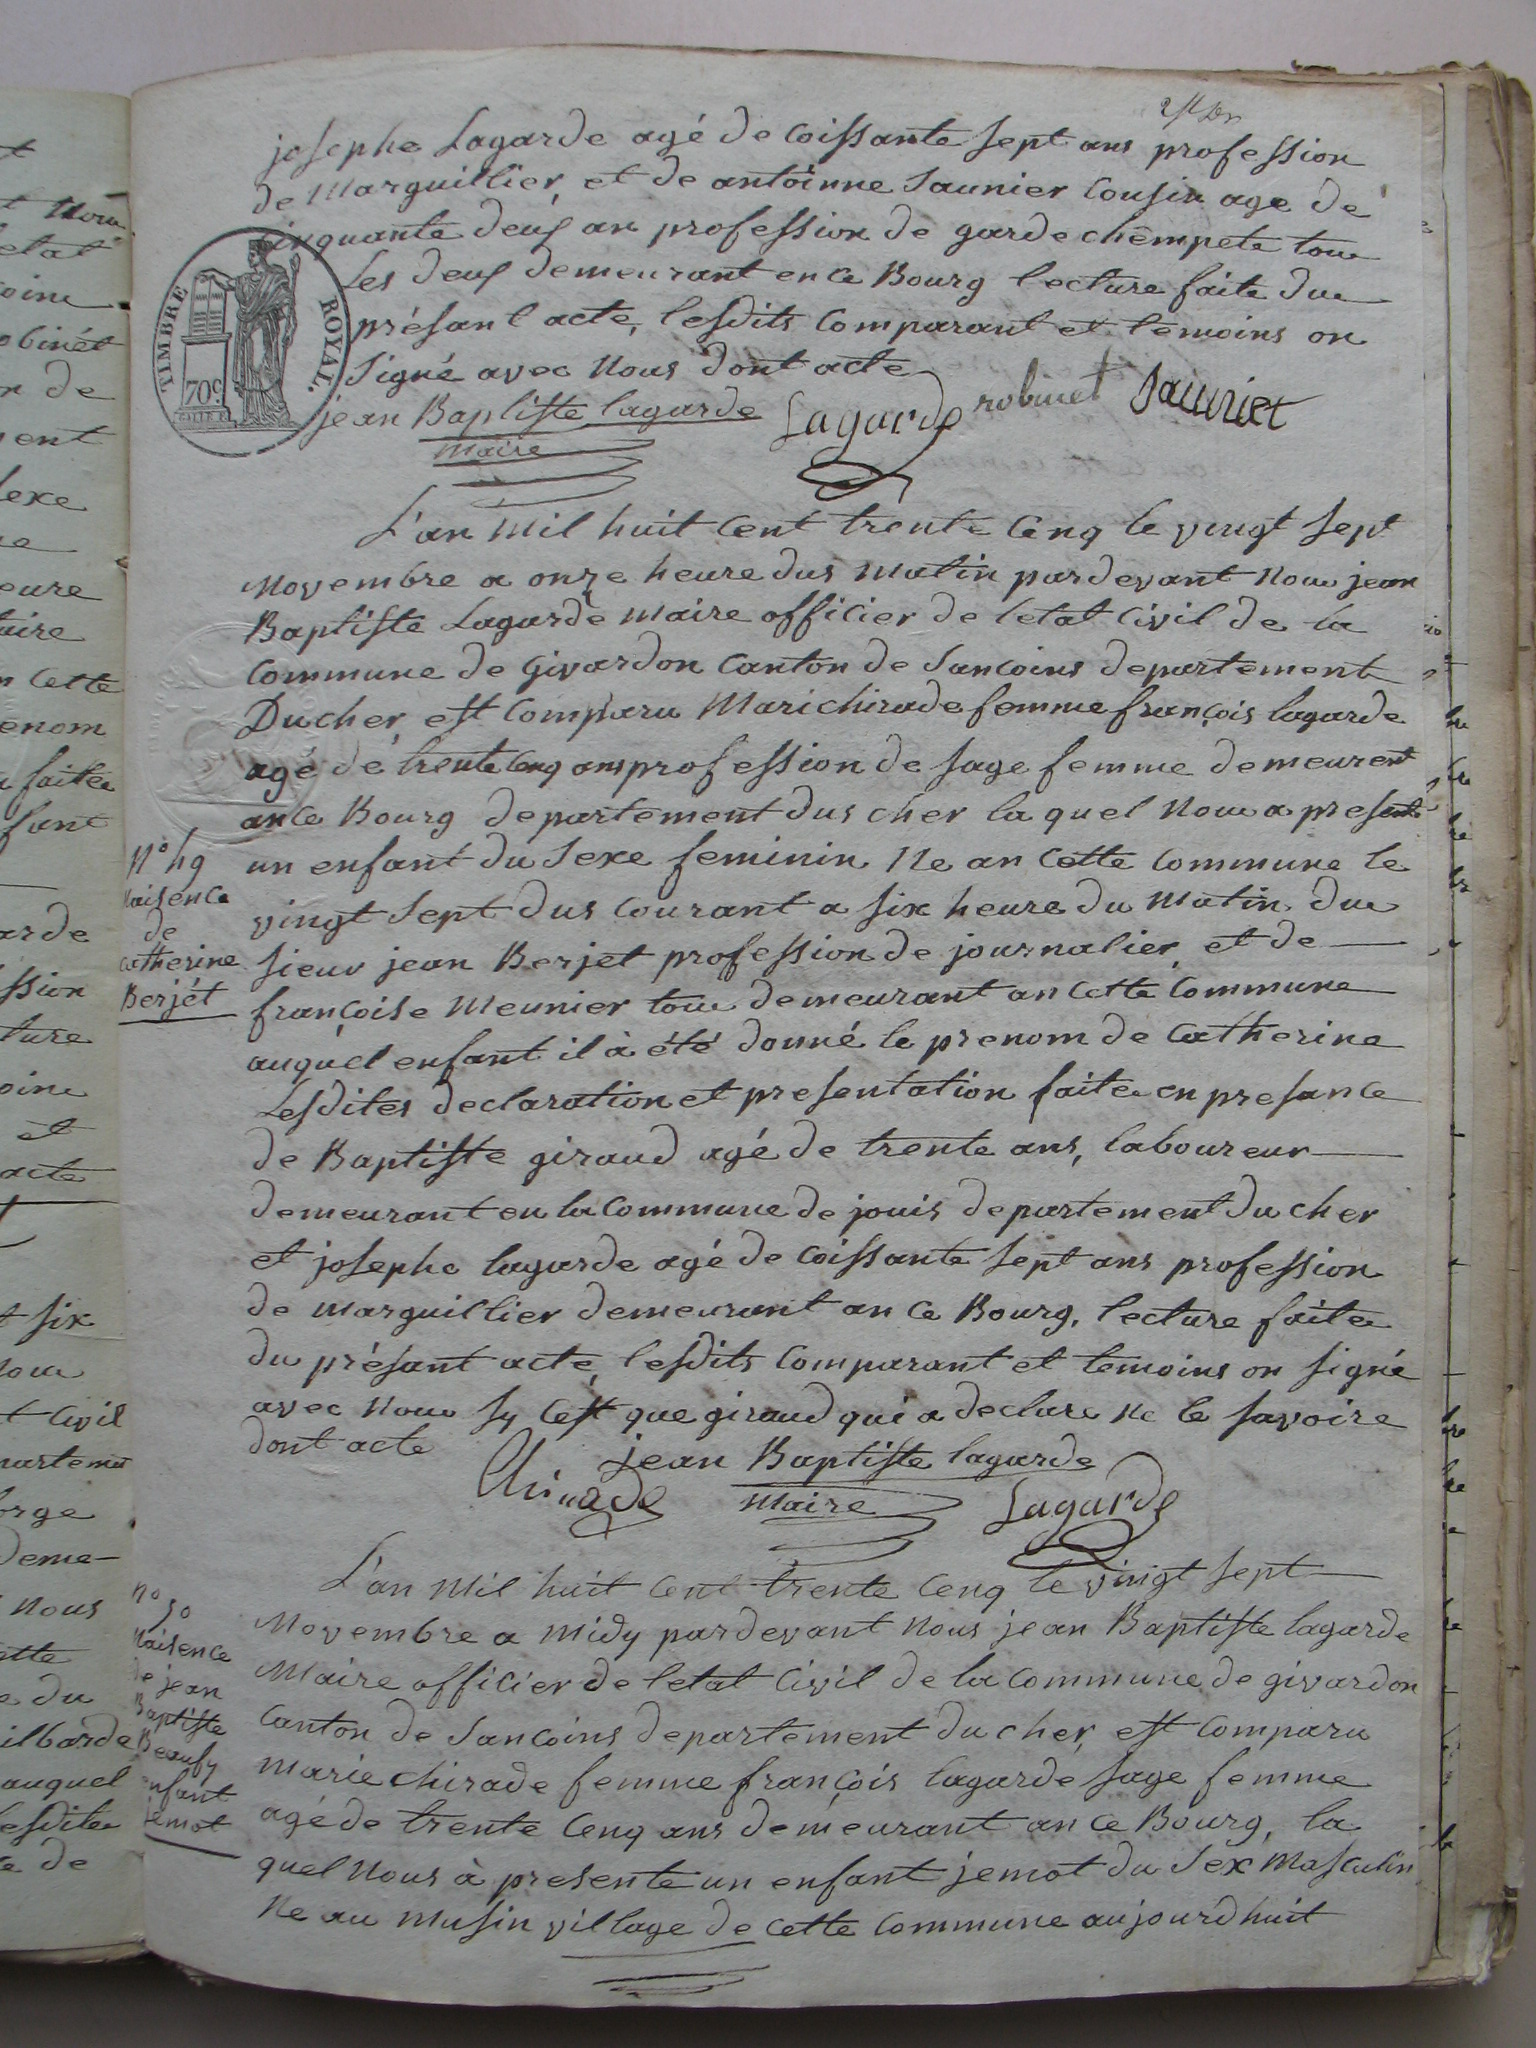 josephe Lagarde agé de coissante sept ans profession
de Marguillier, et de antoinne Saunier Cousin age de
cinquante deux an profession de garde chêmpete tou
Les deux demeurant en ce Bourg lecture faite du
présant acte, lesdits Comparant et temoins on
Signé avec Nous dont acte
TIMBRE ROYAL.
70c
jean Baptiste lagarde
Maire
Lagarde
robinet
Saunier
L'an Mil huit Cent trente Cenq le vingt sept
Novembre a onze heure dus Matin pardevant Nou jean
Baptiste Lagarde Maire officier de letat Civil de la
Commune de Givardon Canton de Sancoins departement
Du cher, est Comparu Marichirade femme françois lagarde
agé de trente Cenq ans profession de sage femme demeurent
an ce Bourg departement dus cher la quel Nou a presente
un enfant du Sexe feminin Ne an Cette Commune le
vingt Sept dus Courant a six heure du Matin, du
sieur jean Berjet profession de journalier, et de
françoise Meunier tou demeurant an cette Commune
auquel enfant il à été donné le prenom de Catherine
Lesdites declaration et presentation faite en presance
de Baptiste giraud agé de trente ans, laboureur
demeurant en la Commune de jouis departement du cher
et josephe lagarde agé de coissante sept ans profession
de marguillier demeurant an ce Bourg, lecture faite
du présant acte, lesdits Comparant et temoins on signé
avec Nou sy Cest que giraud qui a declare Ne le savoire
dont acte
N° 49
Naisence
de
Catherine
Berjét
jean Baptiste lagarde
Chirade
Maire
Lagarde
L'an Mil huit Cent trente Cenq le vingt sept
Novembre a Midy pardevant Nous jean Baptiste lagarde
Maire officier de letat Civil de la Commune de givardon
Canton de Sancoins departement du cher, est Comparu
Marie chirade femme françois lagarde sage femme
agé de trente Cenq ans demeurant an ce Bourg, la
quel Nous à presente un enfant jemot du Sex Masculin
Ne au Musin village de cette Commune aujourdhuit
N° 50
Naisence
de jean
Baptiste
Beaufy
enfant
jemot